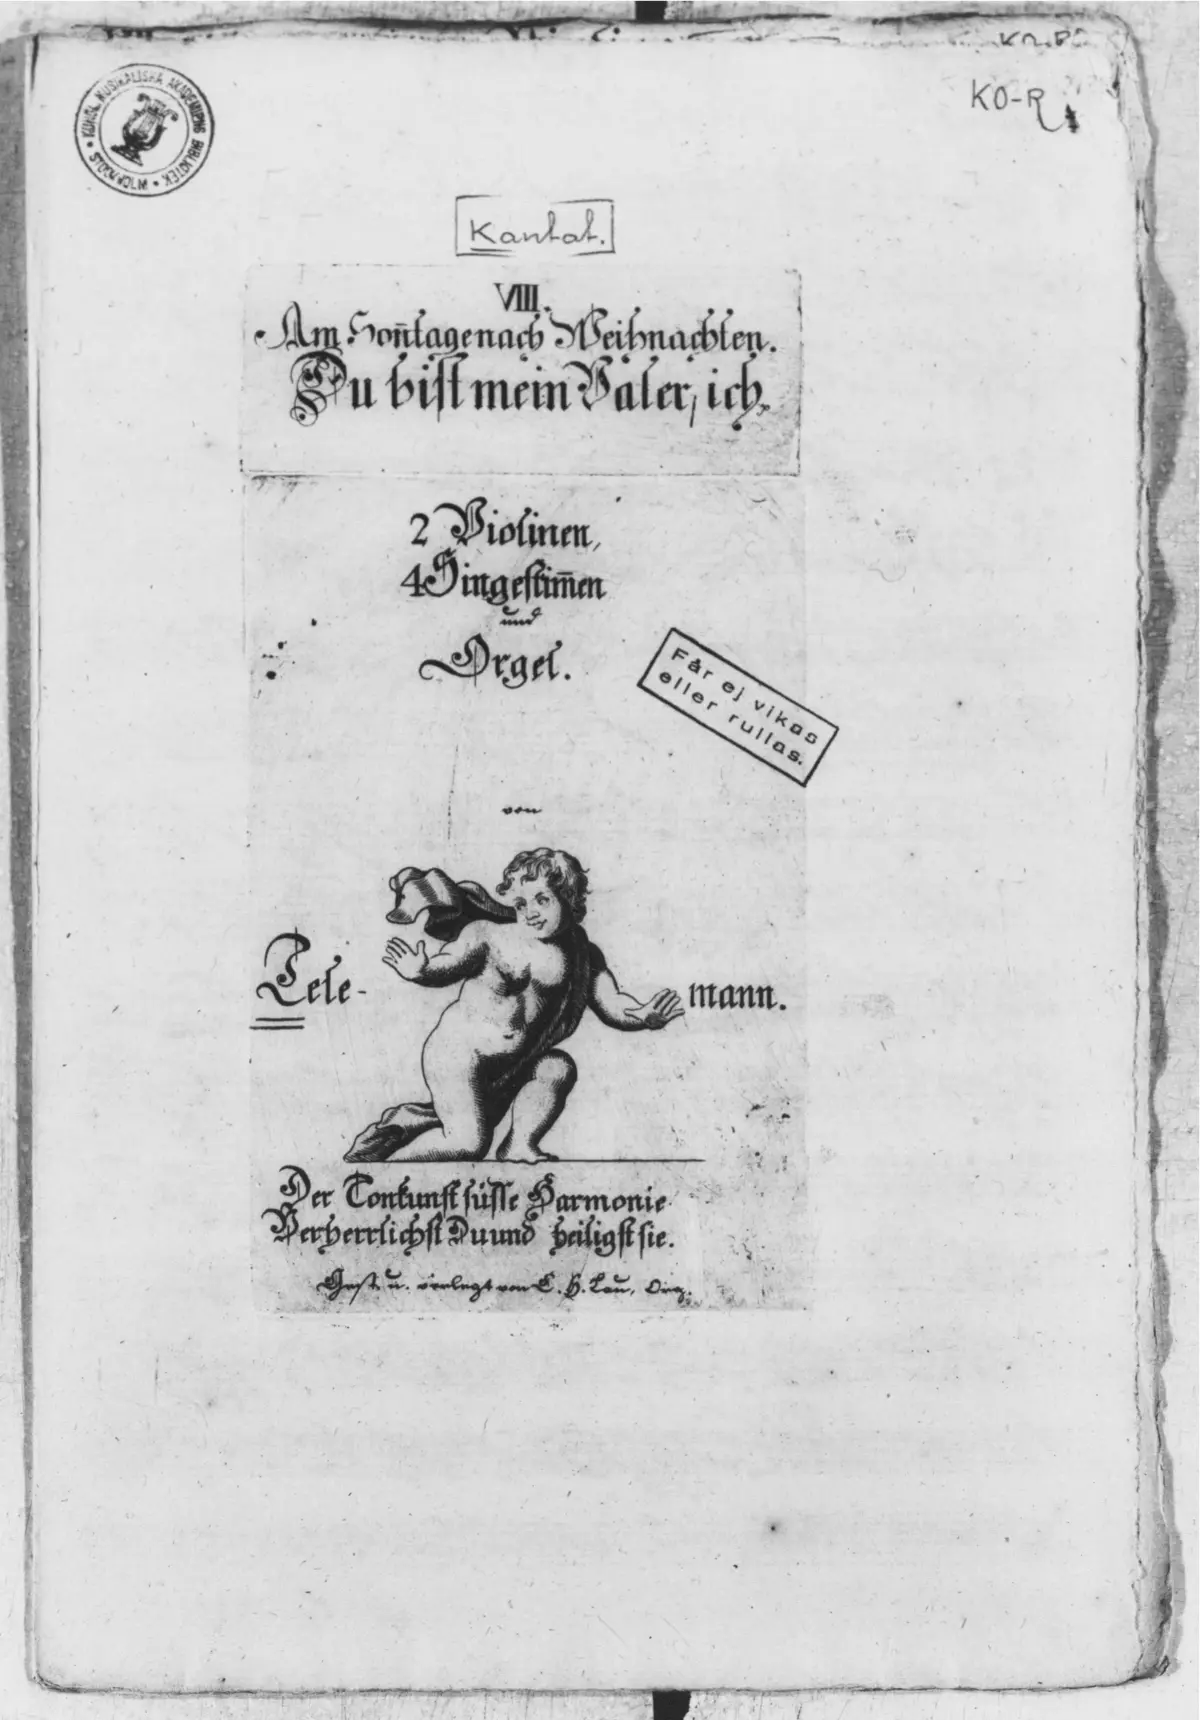 KUNGL. MUSIKALISKA AKADEMIENS BIBLIOTEK • STOCKHOLM •
KO-R
Kantat.
VIII.
Am Son̄tage nach Weihnachten.
Du bist mein Vater, ich.
2 Violinen,
4 Singestim̄en
und
Orgel.
Får ej vikas
eller rullas.
von
Tele-
mann.
Der Tonkunst süsse Harmonie
Verherrlichst Du und heiligst sie.
Gest. u. verlegt von C. H. Lau, Org.